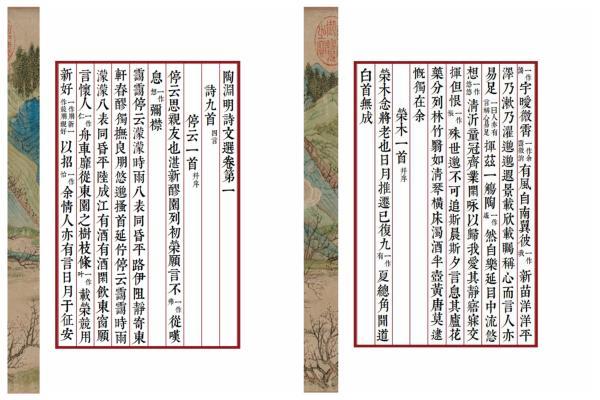 陶淵明詩文選卷第一
詩九首 四言
停云一首 并序
停云思親友也湛新醪園列初榮願言不一作弗從嘆
息一作想彌襟
靄靄停云濛濛時雨八表同昏平路伊阻靜寄東
軒春醪獨撫良朋悠邈搔首延佇停云靄靄時雨
濛濛八表同昏平陸成江有酒有酒閒飲東窗願
言懷人一作仁舟車靡從東園之樹枝條一作叶載榮競用
新好以招一作怡余情人亦有言日月于征安
宇曖微霄有風自南翼彼一作我新苗洋洋平
澤乃漱乃濯邈邈遐景載欣載矚稱心而言人亦
易足一曰人亦有言稱心易足揮茲一觴陶一作遙然自樂延目中流悠
想一作悠悠清沂童冠齊業閑詠以歸我愛其靜寤寐交
揮但恨一作悵殊世邈不可追斯晨斯夕言息其廬花
藥分列林竹翳如清琴橫床濁酒半壺黃唐莫逮
慨獨在余
榮木一首 并序
榮木念將老也日月推遷已復九一作有夏總角聞道
白首無成